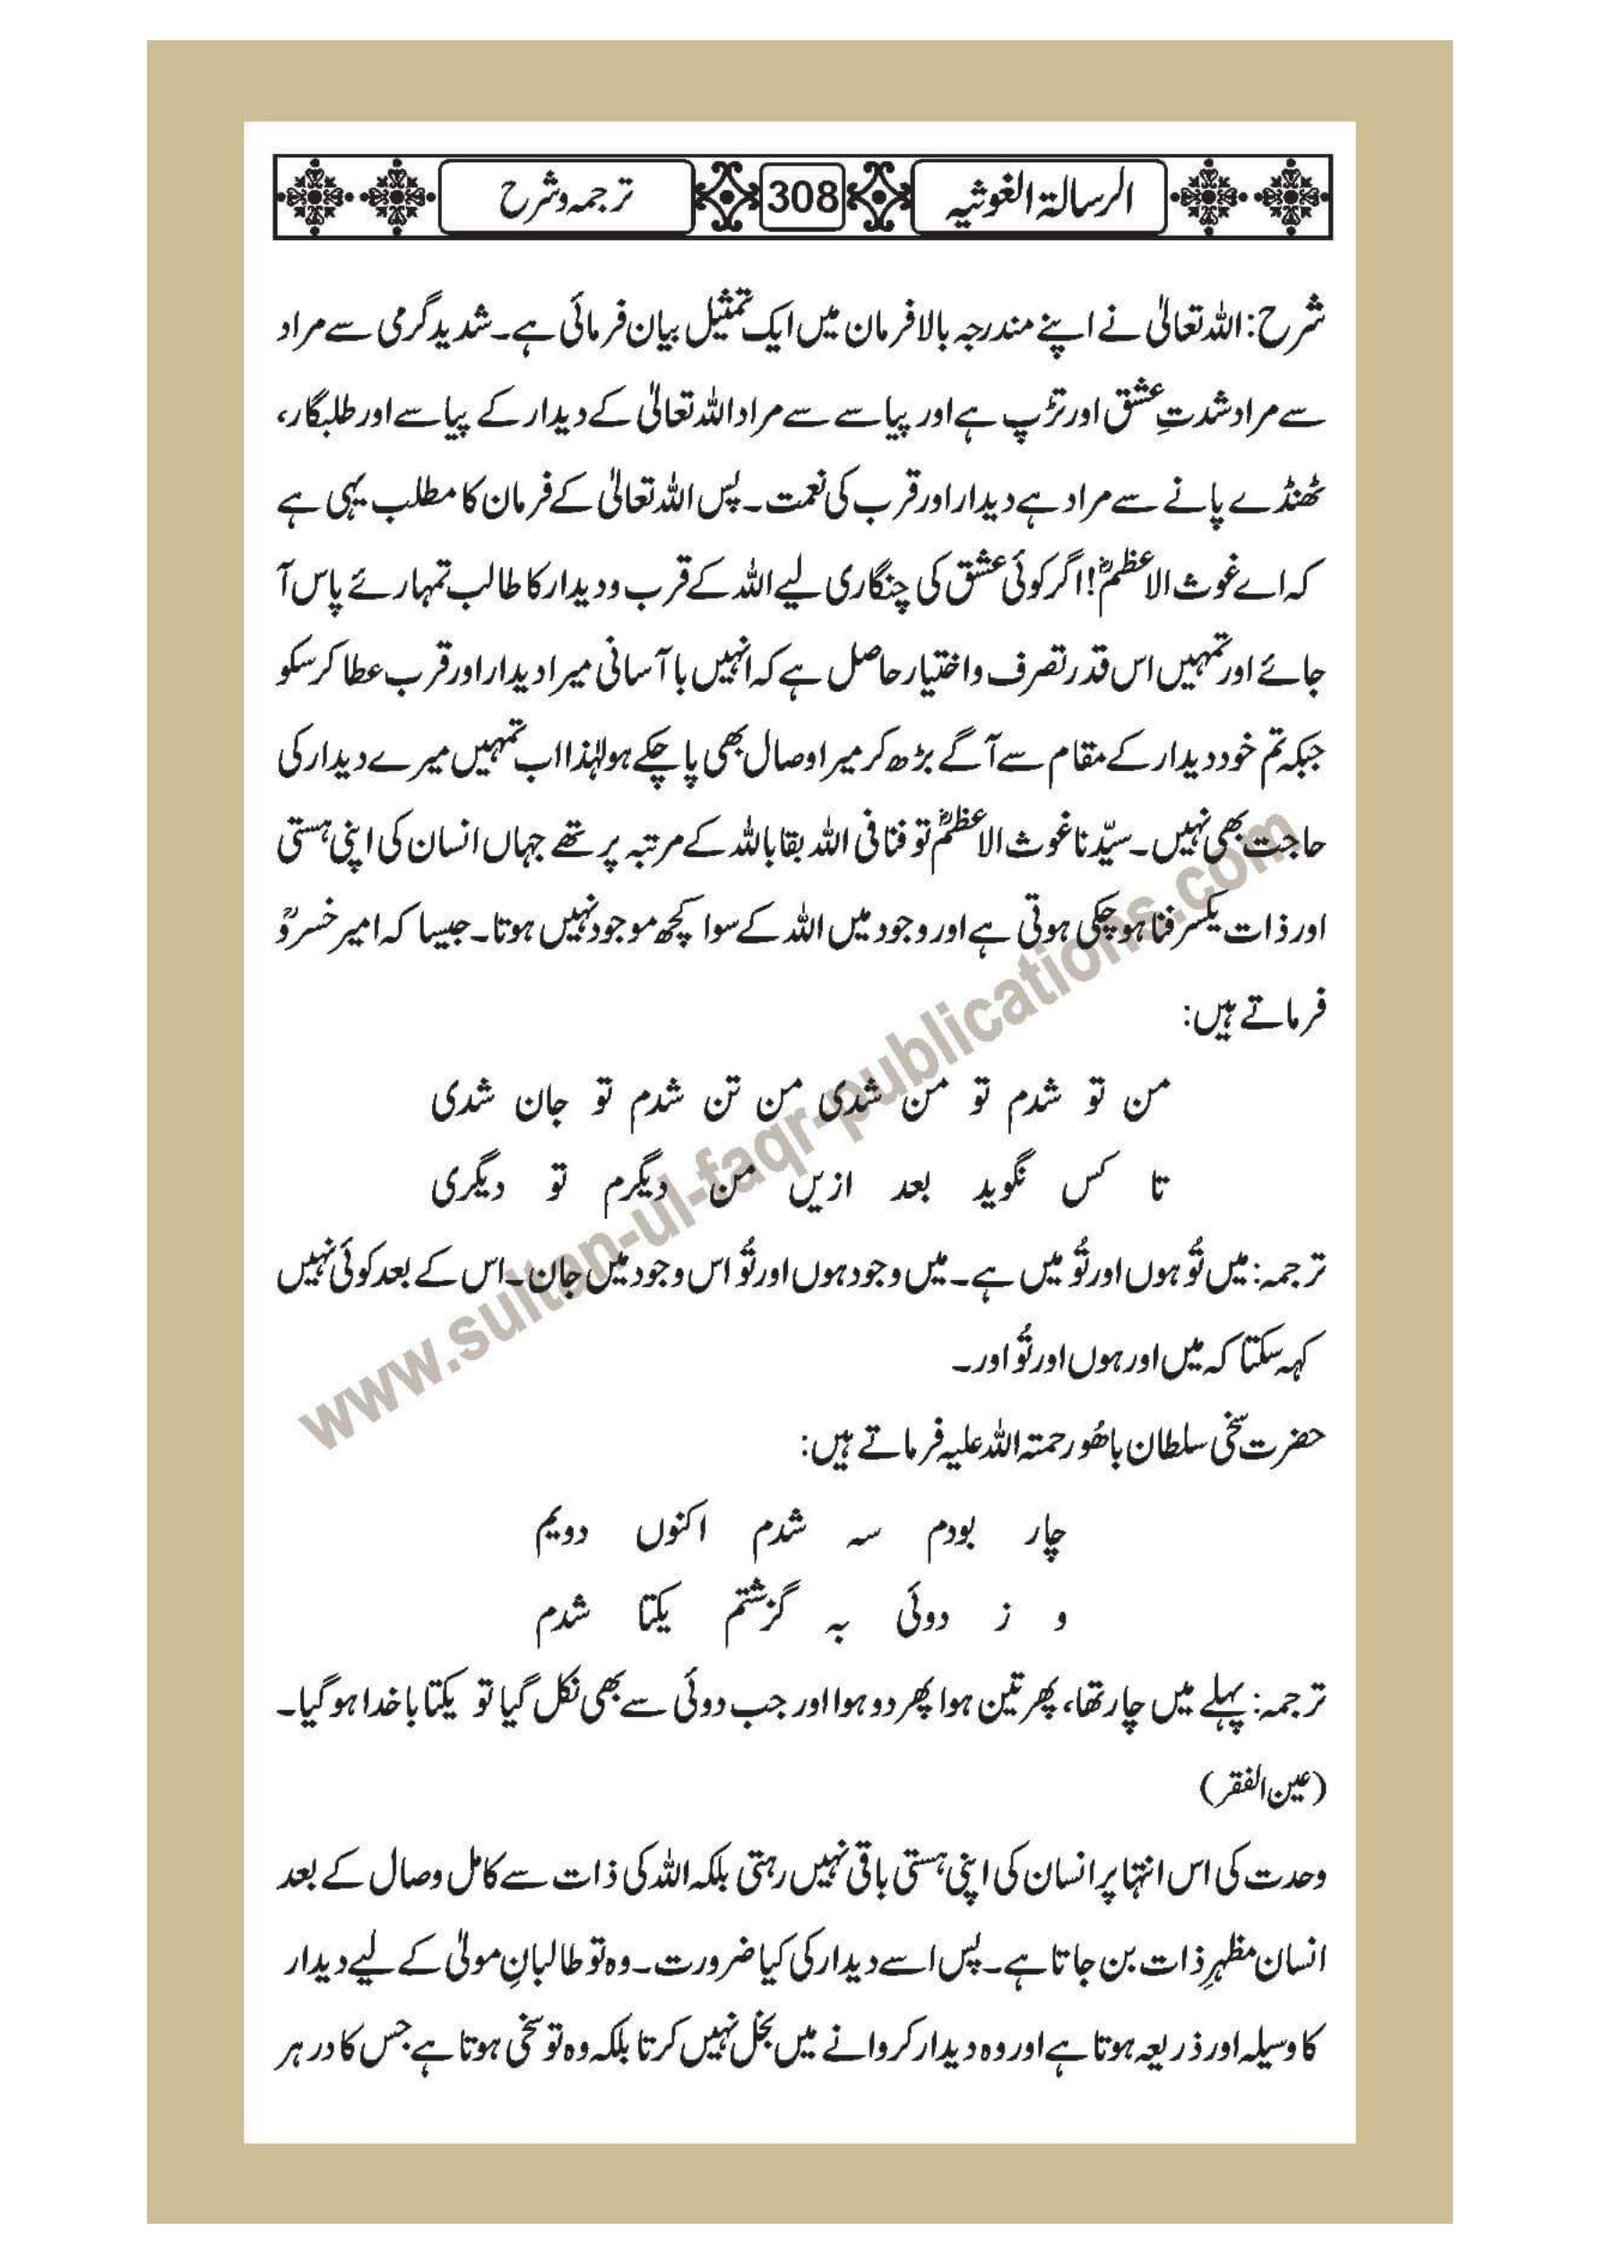 الرسالۃ الغوثیہ 308 ترجمہ و شرح
شرح: اللہ تعالیٰ نے اپنے مندرجہ بالا فرمان میں ایک تمثیل بیان فرمائی ہے۔ شدید گرمی سے مراد
سے مراد شدتِ عشق اور تڑپ ہے اور پیاسے سے مراد اللہ تعالیٰ کے دیدار کے پیاسے اور طلبگار،
ٹھنڈے پانے سے مراد ہے دیدار اور قرب کی نعمت۔ پس اللہ تعالیٰ کے فرمان کا مطلب یہی ہے
کہ اے غوث الاعظمؓ! اگر کوئی عشق کی چنگاری لیے اللہ کے قرب و دیدار کا طالب تمہارے پاس آ
جائے اور تمہیں اس قدر تصرف و اختیار حاصل ہے کہ انہیں باآسانی میرا دیدار اور قرب عطا کر سکو
جبکہ تم خود دیدار کے مقام سے آگے بڑھ کر میرا وصال بھی پا چکے ہو لہٰذا اب تمہیں میرے دیدار کی
حاجت بھی نہیں۔ سیّدنا غوث الاعظمؓ تو فنا فی اللہ بقا باللہ کے مرتبہ پر تھے جہاں انسان کی اپنی ہستی
اور ذات یکسر فنا ہو چکی ہوتی ہے اور وجود میں اللہ کے سوا کچھ موجود نہیں ہوتا۔ جیسا کہ امیر خسروؒ
فرماتے ہیں:
من تو شدم تو من شدی من تن شدم تو جان شدی
تا کس نگوید بعد ازیں من دیگرم تو دیگری
ترجمہ: میں تُو ہوں اور تُو میں ہے۔ میں وجود ہوں اور تُو اس وجود میں جان۔ اس کے بعد کوئی نہیں
کہہ سکتا کہ میں اور ہوں اور تُو اور۔
حضرت سخی سلطان باھُو رحمتہ اللہ علیہ فرماتے ہیں:
چار بودم سہ شدم اکنوں دویم
و ز دوئی بہ گزشتم یکتا شدم
ترجمہ: پہلے میں چار تھا، پھر تین ہوا پھر دو ہوا اور جب دوئی سے بھی نکل گیا تو یکتا با خدا ہو گیا۔
(عین الفقر)
وحدت کی اس انتہا پر انسان کی اپنی ہستی باقی نہیں رہتی بلکہ اللہ کی ذات سے کامل وصال کے بعد
انسان مظہرِ ذات بن جاتا ہے۔ پس اسے دیدار کی کیا ضرورت۔ وہ تو طالبانِ مولیٰ کے لیے دیدار
کا وسیلہ اور ذریعہ ہوتا ہے اور وہ دیدار کروانے میں بخل نہیں کرتا بلکہ وہ تو سخی ہوتا ہے جس کا در ہر
www.sultan-ul-faqr-publications.com